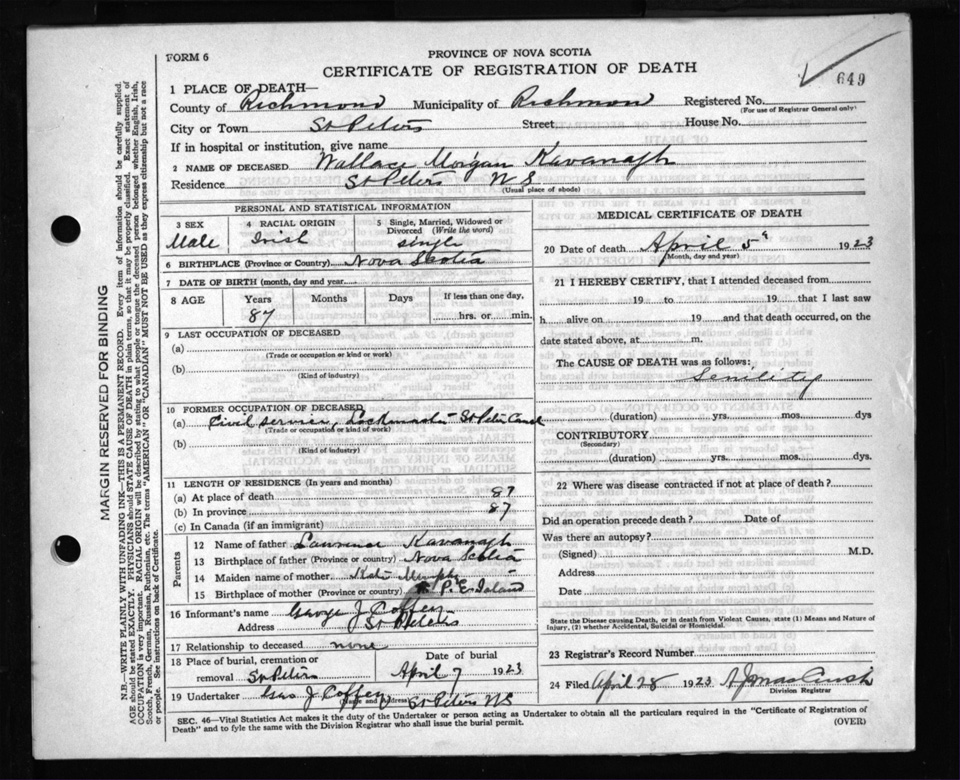 FORM 6
PROVINCE OF NOVA SCOTIA
CERTIFICATE OF REGISTRATION OF DEATH
649
1 PLACE OF DEATH—
County of Richmond Municipality of Richmon Registered No.
(For use of Registrar General only)
City or Town St Peters Street House No.
If in hospital or institution, give name
2 NAME OF DECEASED Wallace Morgan Kavanagh
Residence St Peters NS
(Usual place of abode)
PERSONAL AND STATISTICAL INFORMATION
3 SEX Male
4 RACIAL ORIGIN Irish
5 Single, Married, Widowed or Divorced (Write the word) single
6 BIRTHPLACE (Province or Country) Nova Scotia
7 DATE OF BIRTH (month, day and year)
8 AGE Years Months Days If less than one day,
87 hrs. or min.
9 LAST OCCUPATION OF DECEASED
(a)
(Trade or occupation or kind or work)
(b)
(Kind of industry)
10 FORMER OCCUPATION OF DECEASED
(a) Civil service, Lockmaster St Peters Canal
(Trade or occupation or kind of work)
(b)
(Kind of industry)
11 LENGTH OF RESIDENCE (In years and months)
(a) At place of death 87
(b) In province 87
(c) In Canada (if an immigrant)
Parents
12 Name of father Lawrence Kavanagh
13 Birthplace of father (Province or country) Nova Scotia
14 Maiden name of mother Kate Murphy
15 Birthplace of mother (Province or country) P. E Island
16 Informant's name George J Coffey
Address St Peters
17 Relationship to deceased none
18 Place of burial, cremation or removal St Peters
Date of burial April 7 1923
19 Undertaker Geo J Coffey
(Name and address) St Peters NS
MEDICAL CERTIFICATE OF DEATH
20 Date of death April 5th 1923
(Month, day and year)
21 I HEREBY CERTIFY, that I attended deceased from
19 to 19 that I last saw
h alive on 19 and that death occurred, on the
date stated above, at m.
The CAUSE OF DEATH was as follows:
Senility
(duration) yrs. mos. dys
CONTRIBUTORY
(Secondary)
(duration) yrs. mos. dys.
22 Where was disease contracted if not at place of death?
Did an operation precede death? Date of
Was there an autopsy?
(Signed) M.D.
Address
Date
State the Disease causing Death, or in death from Violent Causes, state (1) Means and Nature of
Injury, (2) whether Accidental, Suicidal or Homicidal.
23 Registrar's Record Number
24 Filed April 28 1923
Division Registrar
SEC. 46—Vital Statistics Act makes it the duty of the Undertaker or person acting as Undertaker to obtain all the particulars required in the "Certificate of Registration of
Death" and to fyle the same with the Division Registrar who shall issue the burial permit.
(OVER)
MARGIN RESERVED FOR BINDING
N.B.—WRITE PLAINLY WITH UNFADING INK—THIS IS A PERMANENT RECORD. Every item of information should be carefully supplied.
AGE should be stated EXACTLY. PHYSICIANS should STATE CAUSE OF DEATH in plain terms, so that it may be properly classified. Exact statement of
OCCUPATION is very important. RACIAL ORIGIN will be described by stating to what people or tongue the deceased person belonged whether English, Irish,
Scotch, French, German, Russian, Ruthenian, etc. The terms "AMERICAN" OR "CANADIAN" MUST NOT BE USED as they express citizenship but not a race
or people. See instructions on back of Certificate.